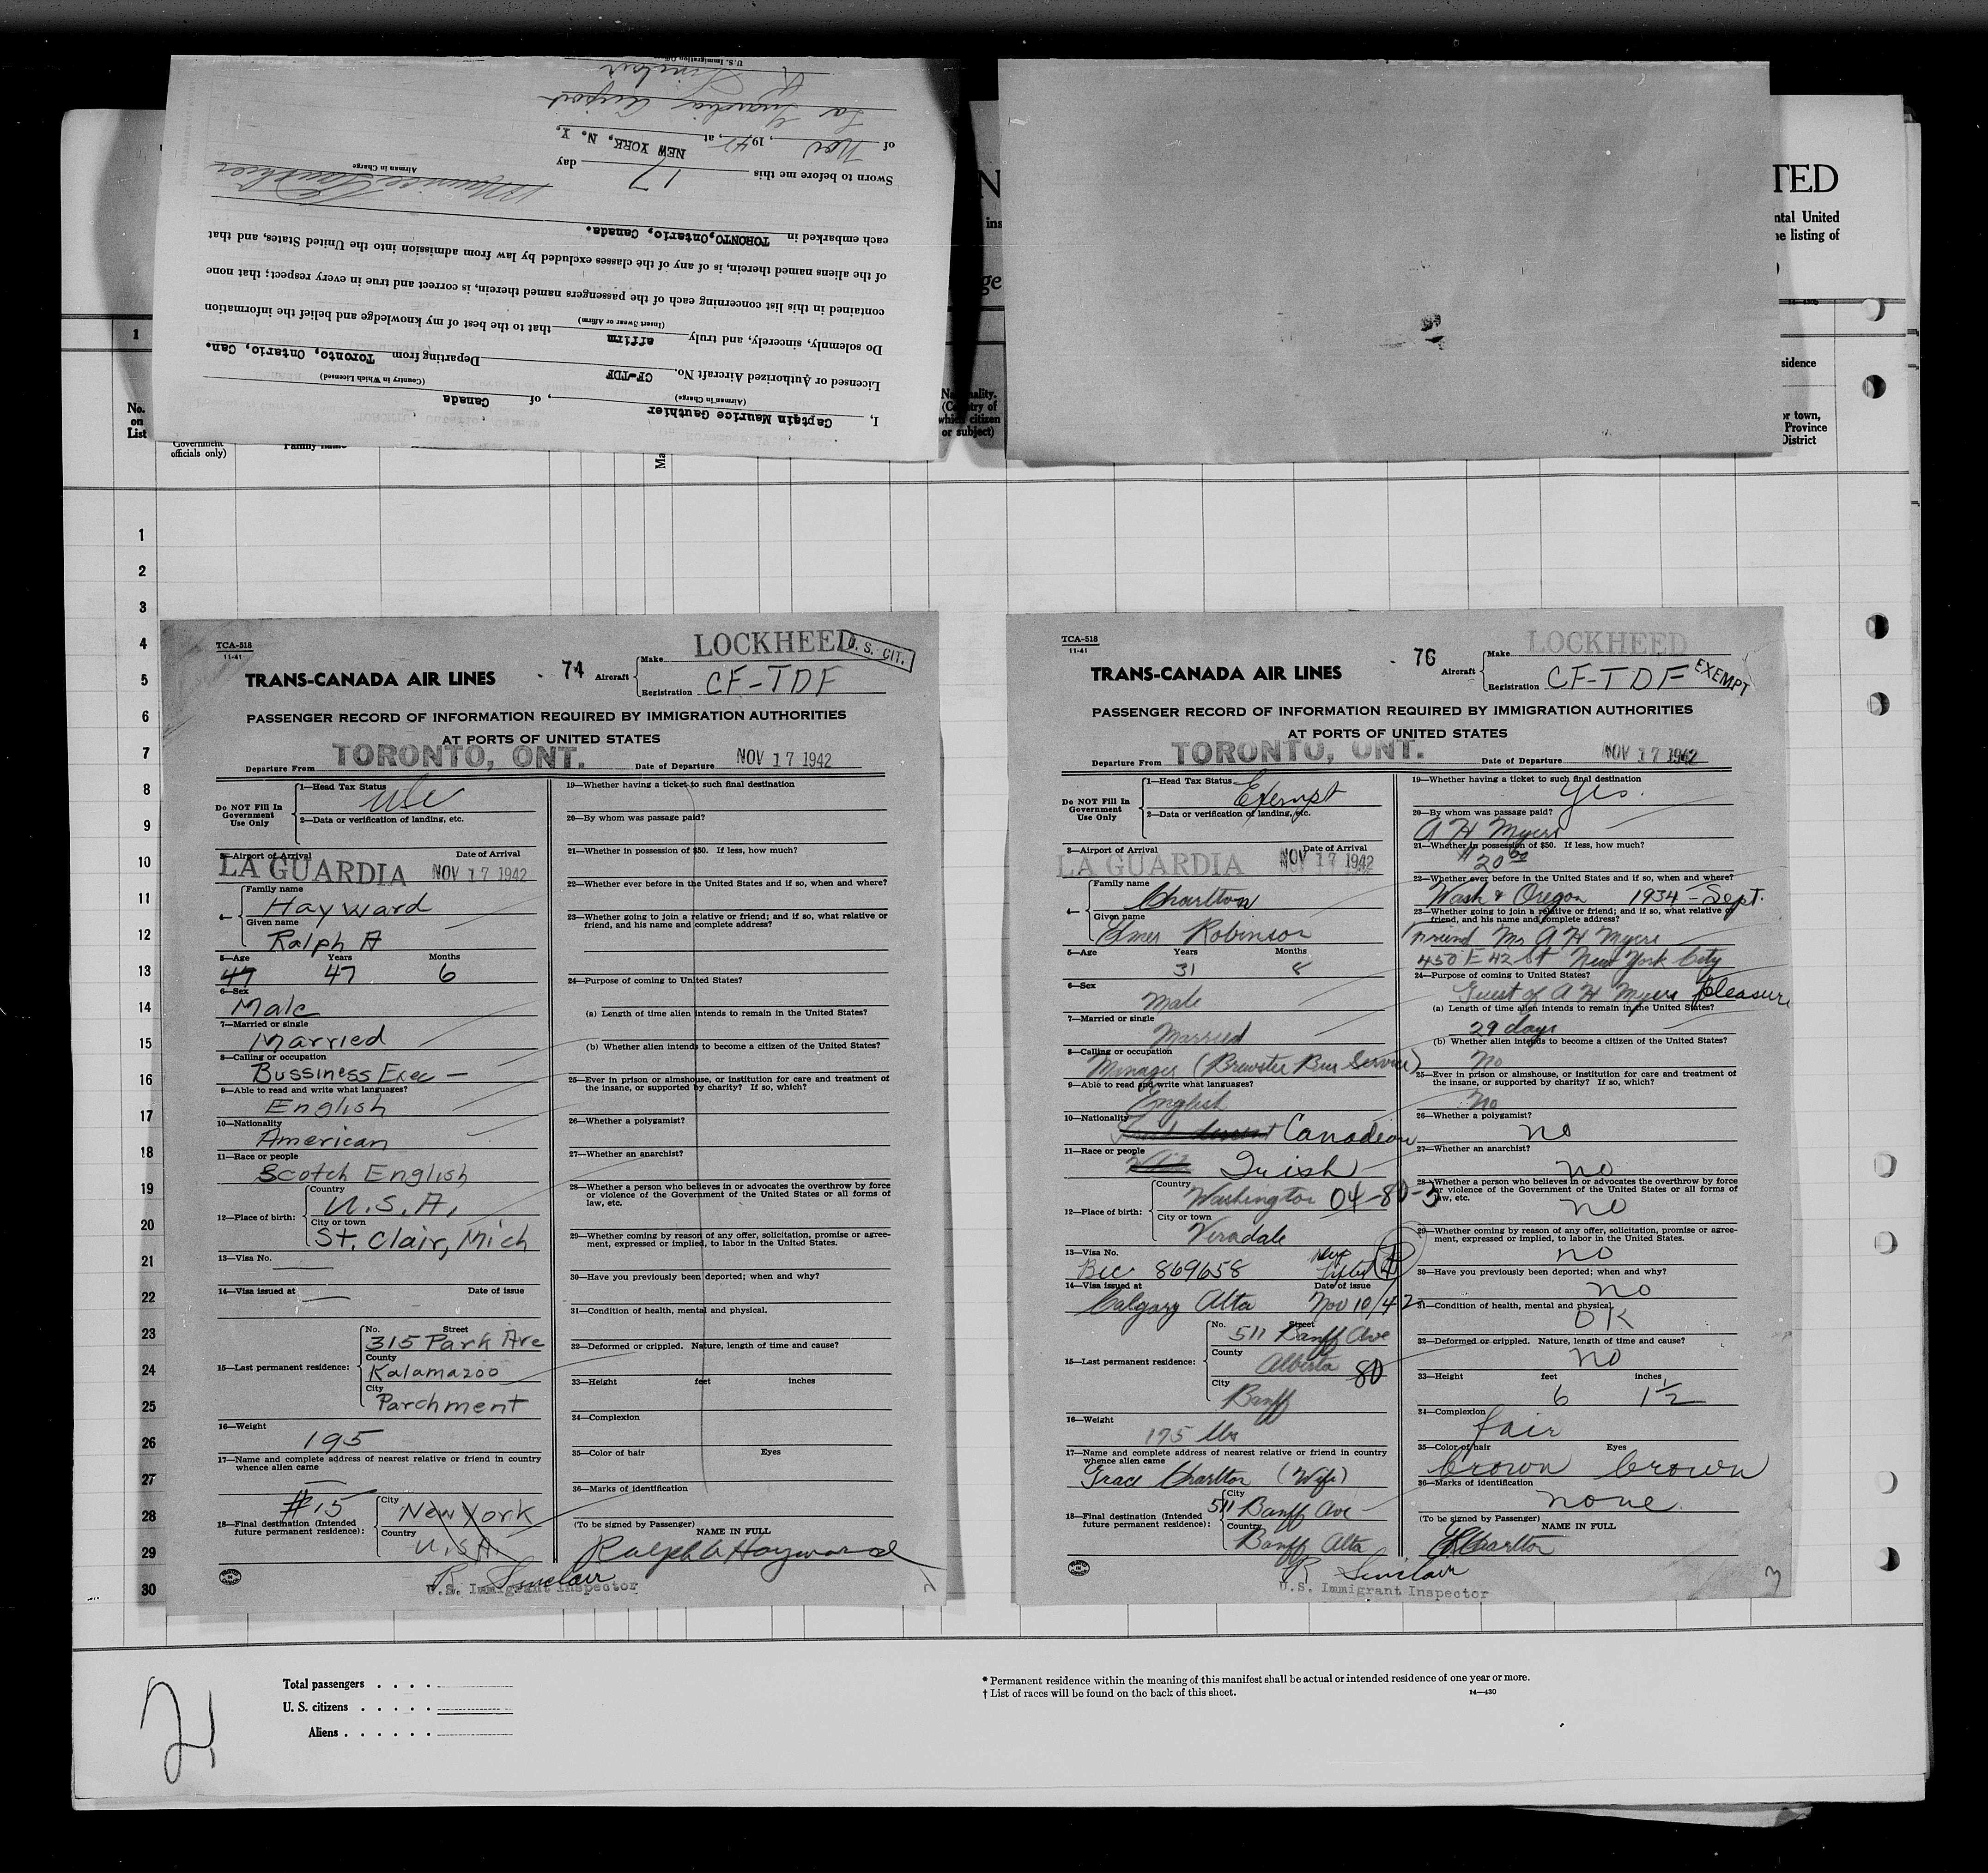 I, Captain Maurice Gauthier, of Canada
(Airman in Charge) (Country in Which Licensed)
Licensed or Authorized Aircraft No. CF-TDF Departing from Toronto, Ontario, Can.
Do solemnly, sincerely, and truly affirm that to the best of my knowledge and belief the information
(Insert Swear or Affirm)
contained in this list concerning each of the passengers named therein, is correct and true in every respect; that none
of the aliens named therein, is of any of the classes excluded by law from admission into the United States, and that
each embarked in TORONTO, Ontario, Canada.
Maurice Gauthier
Airman in Charge
Sworn to before me this 17 day
of Nov, 1942, at NEW YORK, N. Y.
La Guardia Airport
R Sinclair
U.S. Immigration
TED
ntal United
listing of
1
No.
on
List
Government
officials only)
Family name
Nationality.
(Country of
which citizen
or subject)
sidence
or town,
Province
District
1
2
3
4
5
6
7
8
9
10
11
12
13
14
15
16
17
18
19
20
21
22
23
24
25
26
27
28
29
30
TCA-518
11-41
TRANS-CANADA AIR LINES
74
Aircraft
Make LOCKHEED
U. S. CIT.
Registration CF-TDF
PASSENGER RECORD OF INFORMATION REQUIRED BY IMMIGRATION AUTHORITIES
AT PORTS OF UNITED STATES
Departure From TORONTO, ONT. Date of Departure NOV 17 1942
Do NOT Fill In
Government
Use Only
1—Head Tax Status USC
2—Data or verification of landing, etc.
3—Airport of Arrival Date of Arrival
LA GUARDIA NOV 17 1942
4—
Family name
Hayward
Given name
Ralph A
5—Age Years Months
47 47 6
6—Sex
Male
7—Married or single
Married
8—Calling or occupation
Bussiness Exec —
9—Able to read and write what languages?
English
10—Nationality
American
11—Race or people
Scotch English
12—Place of birth:
Country
U.S.A.
City or town
St. Clair, Mich
13—Visa No.
14—Visa issued at Date of issue
15—Last permanent residence:
No. Street
315 Park Ave
County
Kalamazoo
City
Parchment
16—Weight
195
17—Name and complete address of nearest relative or friend in country
whence alien came
#15
18—Final destination (Intended
future permanent residence):
City
New York
Country
U.S.A.
19—Whether having a ticket to such final destination
20—By whom was passage paid?
21—Whether in possession of $50. If less, how much?
22—Whether ever before in the United States and if so, when and where?
23—Whether going to join a relative or friend; and if so, what relative or
friend, and his name and complete address?
24—Purpose of coming to United States?
(a) Length of time alien intends to remain in the United States?
(b) Whether alien intends to become a citizen of the United States?
25—Ever in prison or almshouse, or institution for care and treatment of
the insane, or supported by charity? If so, which?
26—Whether a polygamist?
27—Whether an anarchist?
28—Whether a person who believes in or advocates the overthrow by force
or violence of the Government of the United States or all forms of
law, etc.
29—Whether coming by reason of any offer, solicitation, promise or agree-
ment, expressed or implied, to labor in the United States.
30—Have you previously been deported; when and why?
31—Condition of health, mental and physical.
32—Deformed or crippled. Nature, length of time and cause?
33—Height feet inches
34—Complexion
35—Color of hair Eyes
36—Marks of identification
(To be signed by Passenger)
NAME IN FULL
Ralph A Hayward
R Sinclair
U.S. Immigrant Inspector
TCA-518
11-41
TRANS-CANADA AIR LINES
76
Aircraft
Make LOCKHEED
Registration CF-TDF
EXEMPT
PASSENGER RECORD OF INFORMATION REQUIRED BY IMMIGRATION AUTHORITIES
AT PORTS OF UNITED STATES
Departure From TORONTO, ONT. Date of Departure NOV 17 1942
Do NOT Fill In
Government
Use Only
1—Head Tax Status Exempt
2—Data or verification of landing, etc.
3—Airport of Arrival Date of Arrival
LA GUARDIA NOV 17 1942
4—
Family name
Charlton
Given name
Elmer Robinson
5—Age Years Months
31 8
6—Sex
Male
7—Married or single
Married
8—Calling or occupation
Manager (Brewster Bus Service)
9—Able to read and write what languages?
English
10—Nationality
Canadian
11—Race or people
Irish
12—Place of birth:
Country
Washington 04-80-3
City or town
Veradale
13—Visa No.
Bcc 869658
14—Visa issued at Date of issue
Calgary Alta Nov 10/42
15—Last permanent residence:
No. Street
511 Banff Ave
County
Alberta 80
City
Banff
16—Weight
175 lbs
17—Name and complete address of nearest relative or friend in country
whence alien came
Grace Charlton (Wife)
18—Final destination (Intended
future permanent residence):
City
511 Banff Ave
Country
Banff Alta
19—Whether having a ticket to such final destination
Yes.
20—By whom was passage paid?
A H Myers
21—Whether in possession of $50. If less, how much?
$20 00
22—Whether ever before in the United States and if so, when and where?
Wash & Oregon 1934 - Sept.
23—Whether going to join a relative or friend; and if so, what relative or
friend, and his name and complete address?
Friend Mr A H Myers
450 E 42 St New York City
24—Purpose of coming to United States?
Guest of A H Myers pleasure
(a) Length of time alien intends to remain in the United States?
29 days
(b) Whether alien intends to become a citizen of the United States?
No
25—Ever in prison or almshouse, or institution for care and treatment of
the insane, or supported by charity? If so, which?
No
26—Whether a polygamist?
no
27—Whether an anarchist?
no
28—Whether a person who believes in or advocates the overthrow by force
or violence of the Government of the United States or all forms of
law, etc.
no
29—Whether coming by reason of any offer, solicitation, promise or agree-
ment, expressed or implied, to labor in the United States.
no
30—Have you previously been deported; when and why?
no
31—Condition of health, mental and physical.
OK
32—Deformed or crippled. Nature, length of time and cause?
no
33—Height feet inches
6 1½
34—Complexion
fair
35—Color of hair Eyes
brown brown
36—Marks of identification
none.
(To be signed by Passenger)
NAME IN FULL
ER Charlton
R Sinclair
U.S. Immigrant Inspector
3
2
Total passengers . . . .
U. S. citizens . . . . .
Aliens . . . . . .
* Permanent residence within the meaning of this manifest shall be actual or intended residence of one year or more.
† List of races will be found on the back of this sheet.
14—430